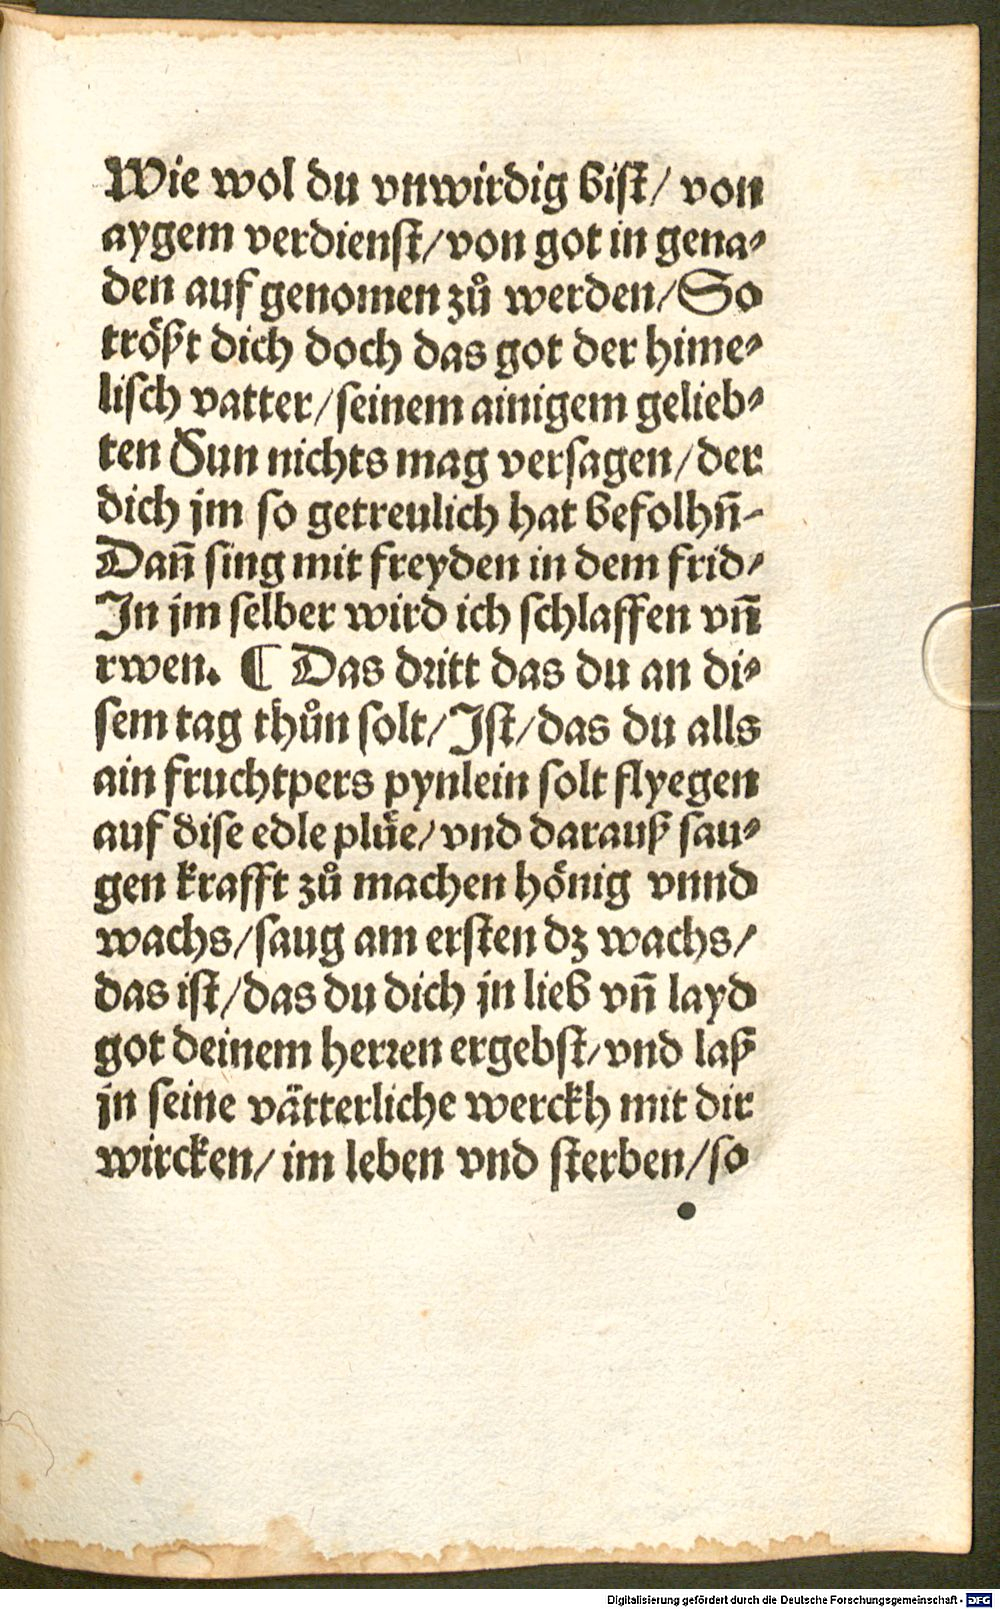 Wie wol du vnwirdig bist/ von
aygem verdienst/von got in gena⸗
den auf genomen zů werden/So
trößt dich doch das got der hime⸗
lisch vatter/seinem ainigem gelieb⸗
ten Sun nichts mag versagen/der
dich jm so getreulich hat befolhn̄-
Dan̄ sing mit freyden in dem frid/
In jm selber wird ich schlaffen vn̄
rwen. ¶ Das dritt das du an di⸗
sem tag thůn solt/Ist/das du alls
ain fruchtpers pynlein solt flyegen
auf dise edle plüe/vnd darauß sau⸗
gen krafft zů machen hönig vnnd
wachs/saug am ersten dz wachs/
das ist/das du dich jn lieb vn̄ layd
got deinem herren ergebst/vnd laß
jn seine vätterliche werckh mit dir
wircken/im leben vnd sterben/so
Digitalisierung gefördert durch die Deutsche Forschungsgemeinschaft - DFG